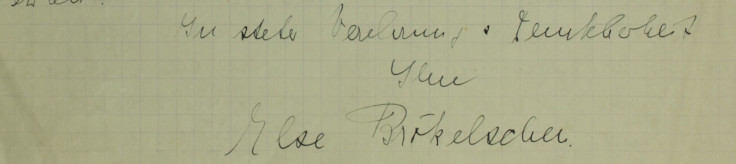 In steter Verehrung & Dankbarkeit
Ihre
Else Brökelschen.